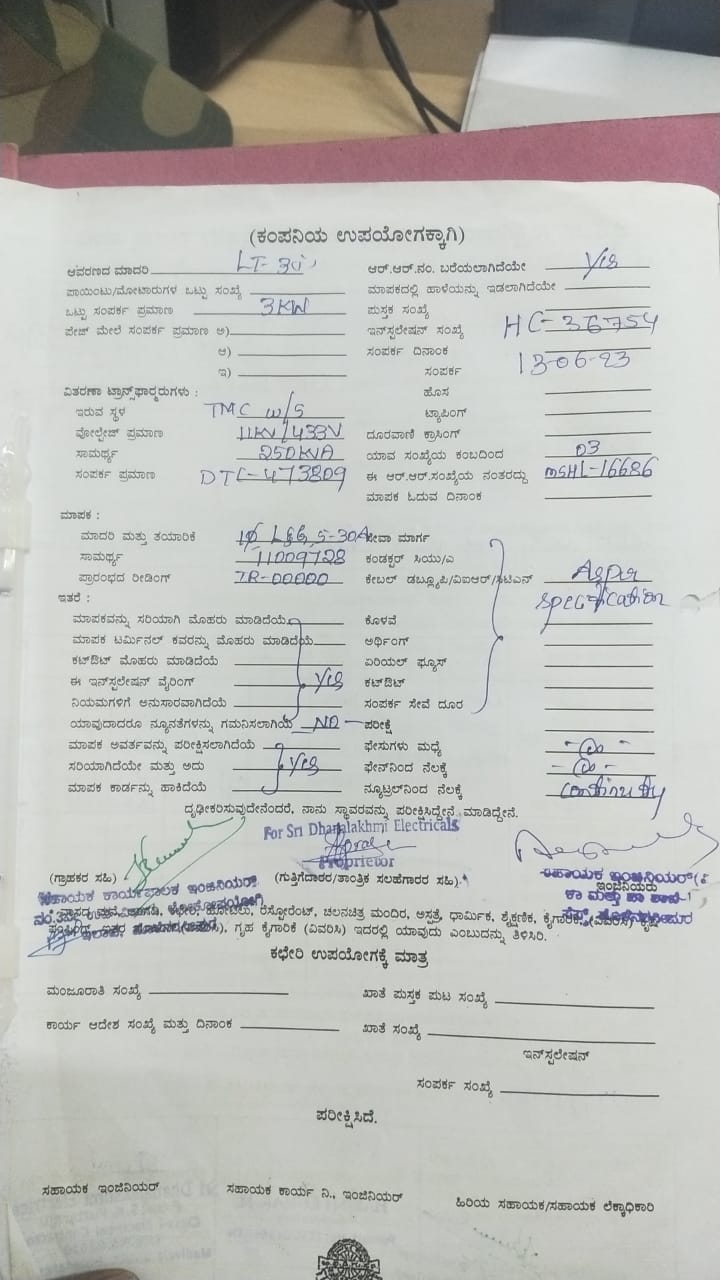 (ಕಂಪನಿಯ ಉಪಯೋಗಕ್ಕಾಗಿ)
ಆವರಣದ ಮಾದರಿ LT-3
ಆರ್.ಆರ್.ನಂ. ಬರೆಯಲಾಗಿದೆಯೇ Yes
ಪಾಯಿಂಟು/ಮೋಟಾರುಗಳ ಒಟ್ಟು ಸಂಖ್ಯೆ
ಮಾಪಕದಲ್ಲಿ ಹಾಳೆಯನ್ನು ಇಡಲಾಗಿದೆಯೇ
ಒಟ್ಟು ಸಂಪರ್ಕ ಪ್ರಮಾಣ 3KW
ಪುಸ್ತಕ ಸಂಖ್ಯೆ
ಪೇಜ್ ಮೇಲೆ ಸಂಪರ್ಕ ಪ್ರಮಾಣ ಅ)
ಇನ್‌ಸ್ಟಲೇಷನ್ ಸಂಖ್ಯೆ HC-36754
ಆ)
ಸಂಪರ್ಕ ದಿನಾಂಕ 13-06-23
ಇ)
ಸಂಪರ್ಕ
ವಿತರಣಾ ಟ್ರಾನ್ಸ್‌ಫಾರ್ಮರುಗಳು :
ಹೊಸ
ಇರುವ ಸ್ಥಳ TMC W/S
ಟ್ಯಾಪಿಂಗ್
ವೋಲ್ಟೇಜ್ ಪ್ರಮಾಣ 11KV/433V
ದೂರವಾಣಿ ಕ್ರಾಸಿಂಗ್
ಸಾಮರ್ಥ್ಯ 250KVA
ಯಾವ ಸಂಖ್ಯೆಯ ಕಂಬದಿಂದ 03
ಸಂಪರ್ಕ ಪ್ರಮಾಣ DTC-473809
ಈ ಆರ್.ಆರ್.ಸಂಖ್ಯೆಯ ನಂತರದ್ದು MSHL-16686
ಮಾಪಕ ಓದುವ ದಿನಾಂಕ
ಮಾಪಕ :
ಮಾದರಿ ಮತ್ತು ತಯಾರಿಕೆ 1Ø L&G, 5-30A
ಸೇವಾ ಮಾರ್ಗ
ಸಾಮರ್ಥ್ಯ 11009728
ಕಂಡಕ್ಟರ್ ಸಿಯು/ಎ
ಪ್ರಾರಂಭದ ರೀಡಿಂಗ್ IR-00000
ಕೇಬಲ್ ಡಬ್ಲ್ಯೂಪಿ/ವಿಐಆರ್/ಸಿಟಿಎನ್ As per
specification
ಇತರೆ :
ಮಾಪಕವನ್ನು ಸರಿಯಾಗಿ ಮೊಹರು ಮಾಡಿದೆಯೆ
ಕೊಳವೆ
ಮಾಪಕ ಟರ್ಮಿನಲ್ ಕವರನ್ನು ಮೊಹರು ಮಾಡಿದೆಯೆ
ಅರ್ಥಿಂಗ್
ಕಟ್‌ಔಟ್ ಮೊಹರು ಮಾಡಿದೆಯೆ
ಏರಿಯಲ್ ಫ್ಯೂಸ್
ಈ ಇನ್‌ಸ್ಟಲೇಷನ್ ವೈರಿಂಗ್ Yes
ಕಟ್‌ಔಟ್
ನಿಯಮಗಳಿಗೆ ಅನುಸಾರವಾಗಿದೆಯೆ
ಸಂಪರ್ಕ ಸೇವೆ ದೂರ
ಯಾವುದಾದರೂ ನ್ಯೂನತೆಗಳನ್ನು ಗಮನಿಸಲಾಗಿಯೆ NO
ಪರೀಕ್ಷೆ
ಮಾಪಕ ಅವರ್ತವನ್ನು ಪರೀಕ್ಷಿಸಲಾಗಿದೆಯೆ
ಫೇಸುಗಳು ಮಧ್ಯೆ
ಸರಿಯಾಗಿದೆಯೇ ಮತ್ತು ಅದು Yes
ಫೇಸ್‌ನಿಂದ ನೆಲಕ್ಕೆ
ಮಾಪಕ ಕಾರ್ಡನ್ನು ಹಾಕಿದೆಯೆ
ನ್ಯೂಟ್ರಲ್‌ನಿಂದ ನೆಲಕ್ಕೆ continuity
ದೃಢೀಕರಿಸುವುದೇನೆಂದರೆ, ನಾನು ಸ್ಥಾವರವನ್ನು ಪರೀಕ್ಷಿಸಿದ್ದೇನೆ ಮಾಡಿದ್ದೇನೆ.
For Sri Dhanalakshmi Electricals
Proprietor
(ಗ್ರಾಹಕರ ಸಹಿ)
(ಗುತ್ತಿಗೆದಾರರ/ತಾಂತ್ರಿಕ ಸಲಹೆಗಾರರ ಸಹಿ)
ಸಹಾಯಕ ಇಂಜಿನಿಯರ್
ಇಂಜಿನಿಯರು
ಸಹಾಯಕ ಕಾರ್ಯಪಾಲಕ ಇಂಜಿನಿಯರ್
ಕಾ ಮತ್ತು ಪಾ ಶಾಖೆ-1
ಕಛೇರಿ, ಹೋಟಲು, ರೆಸ್ಟೋರೆಂಟ್, ಚಲನಚಿತ್ರ ಮಂದಿರ, ಆಸ್ಪತ್ರೆ, ಧಾರ್ಮಿಕ, ಶೈಕ್ಷಣಿಕ, ಕೈಗಾರಿಕೆ, (ವಿವರಿಸಿ) ಕೃಷಿ
ಗೃಹ ಕೈಗಾರಿಕೆ (ವಿವರಿಸಿ) ಇದರಲ್ಲಿ ಯಾವುದು ಎಂಬುದನ್ನು ತಿಳಿಸಿರಿ.
ಕಛೇರಿ ಉಪಯೋಗಕ್ಕೆ ಮಾತ್ರ
ಮಂಜೂರಾತಿ ಸಂಖ್ಯೆ
ಖಾತೆ ಪುಸ್ತಕ ಪುಟ ಸಂಖ್ಯೆ
ಕಾರ್ಯ ಆದೇಶ ಸಂಖ್ಯೆ ಮತ್ತು ದಿನಾಂಕ
ಖಾತೆ ಸಂಖ್ಯೆ
ಇನ್‌ಸ್ಟಲೇಷನ್
ಸಂಪರ್ಕ ಸಂಖ್ಯೆ
ಪರೀಕ್ಷಿಸಿದೆ.
ಸಹಾಯಕ ಇಂಜಿನಿಯರ್
ಸಹಾಯಕ ಕಾರ್ಯ ನಿ., ಇಂಜಿನಿಯರ್
ಹಿರಿಯ ಸಹಾಯಕ/ಸಹಾಯಕ ಲೆಕ್ಕಾಧಿಕಾರಿ